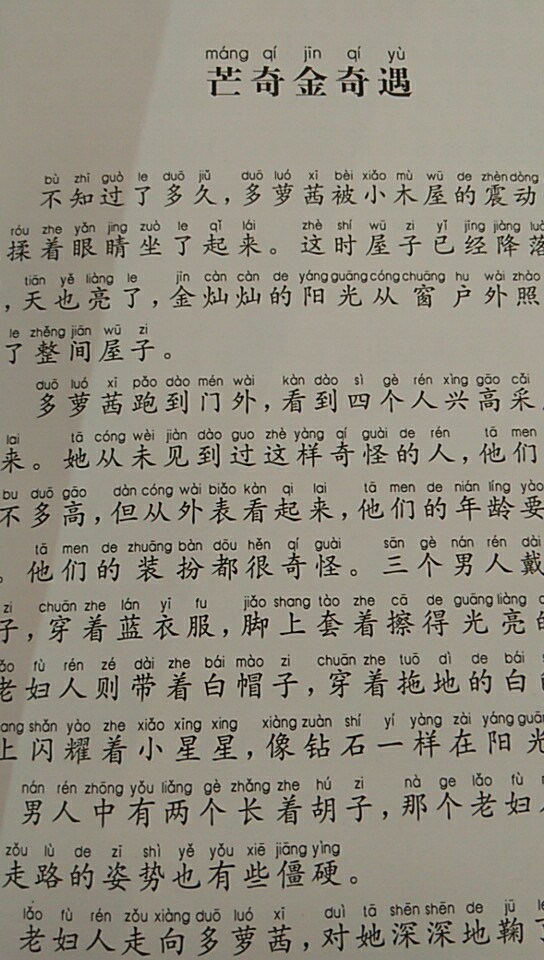 máng qí jīn qí yù
芒奇金奇遇
bù zhī guò le duō jiǔ duō luó xī bèi xiǎo mù wū de zhèn dòng
不知过了多久，多萝茜被小木屋的震动
róu zhe yǎn jing zuò le qǐ lái zhè shí wū zi yǐ jīng jiàng
揉着眼睛坐了起来。这时屋子已经降落
tiān yě liàng le jīn càn càn de yáng guāng cóng chuāng hu wài zhào
，天也亮了，金灿灿的阳光从窗户外照
le zhěng jiān wū zi
了整间屋子。
duō luó xī pǎo dào mén wài kàn dào sì gè rén xìng gāo cǎi
多萝茜跑到门外，看到四个人兴高采
lai tā cóng wèi jiàn dào guo zhè yàng qí guài de rén tā men
来。她从未见到过这样奇怪的人，他们
bu duō gāo dàn cóng wài biǎo kàn qi lai tā men de nián líng yào
不多高，但从外表看起来，他们的年龄要
tā men de zhuāng bàn dōu hěn qí guài sān gè nán rén dài
。他们的装扮都很奇怪。三个男人戴
zi chuān zhe lán yī fu jiǎo shang tào zhe cā de guāng liàng
子，穿着蓝衣服，脚上套着擦得光亮的
fù rén zé dài zhe bái mào zi chuān zhe tuō dì de bái
老妇人则带着白帽子，穿着拖地的白
shǎn yào zhe xiǎo xīng xing xiàng zuàn shí yí yàng zài yáng
上闪耀着小星星，像钻石一样在阳光
nán rén zhōng yǒu liǎng gè zhǎng zhe hú zi nà ge lǎo fù
男人中有两个长着胡子，那个老妇
zǒu lù de zī shì yě yǒu xiē jiāng yìng
走路的姿势也有些僵硬。
lǎo fù rén zǒu xiàng duō luó xī duì tā shēn shēn de jū
老妇人走向多萝茜，对她深深地鞠了